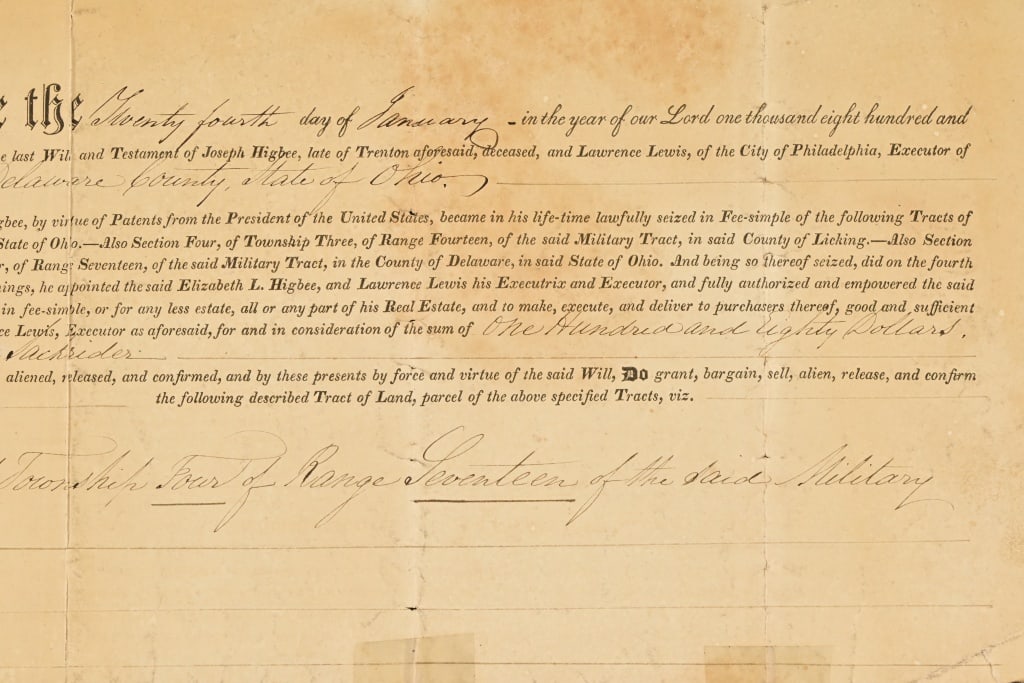 the Twenty fourth day of January - in the year of our Lord one thousand eight hundred and
last Will and Testament of Joseph Higbee, late of Trenton aforesaid, deceased, and Lawrence Lewis, of the City of Philadelphia, Executor of
Delaware County, State of Ohio.
gbee, by virtue of Patents from the President of the United States, became in his life-time lawfully seized in Fee-simple of the following Tracts of
State of Ohio.—Also Section Four, of Township Three, of Range Fourteen, of the said Military Tract, in said County of Licking.—Also Section
r, of Range Seventeen, of the said Military Tract, in the County of Delaware, in said State of Ohio. And being so thereof seized, did on the fourth
ings, he appointed the said Elizabeth L. Higbee, and Lawrence Lewis his Executrix and Executor, and fully authorized and empowered the said
in fee-simple, or for any less estate, all or any part of his Real Estate, and to make, execute, and deliver to purchasers thereof, good and sufficient
ce Lewis, Executor as aforesaid, for and in consideration of the sum of One Hundred and Eighty Dollars.
Sackrider
aliened, released, and confirmed, and by these presents by force and virtue of the said Will, Do grant, bargain, sell, alien, release, and confirm
the following described Tract of Land, parcel of the above specified Tracts, viz.
Township Four of Range Seventeen of the said Military